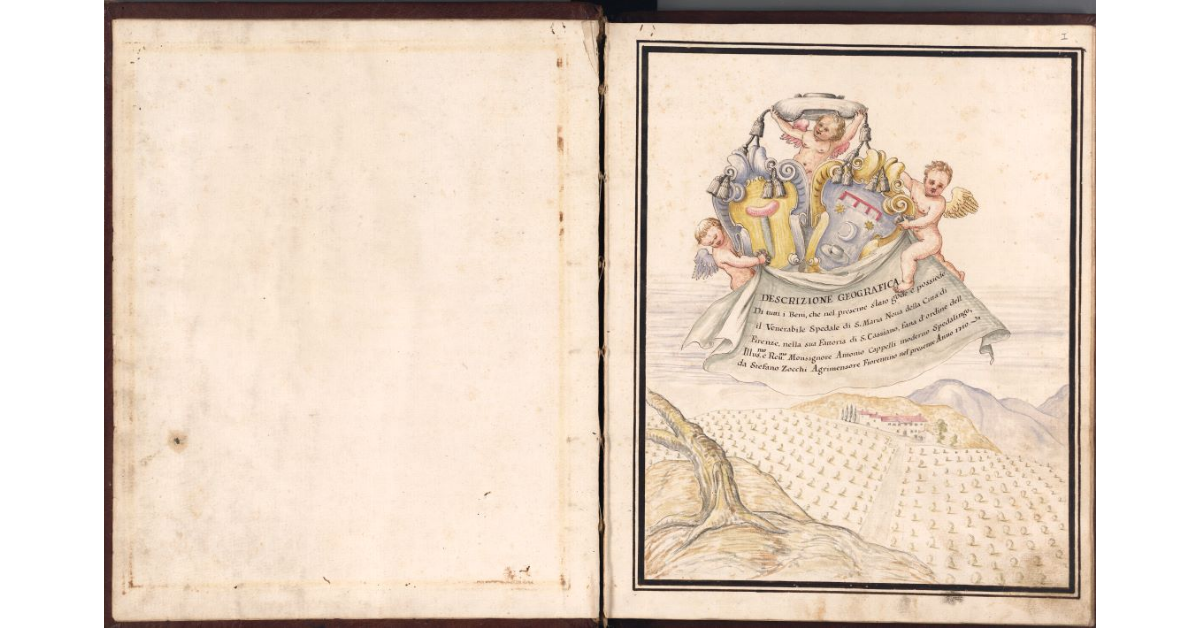 I
DESCRIZIONE GEOGRAFICA
Di tutti i Beni, che nel presente stato gode, e possiede
il Venerabile Spedale di S. Maria Nova della Città di
Firenze, nella sua Fattoria di S. Cassiano, fatta d'ordine dell
Illus.mo e Reu.mo Monsignore Antonio Cappelli moderno Spedalingo,
da Stefano Zocchi Agrimensore Fiorentino nel presente Anno 1710